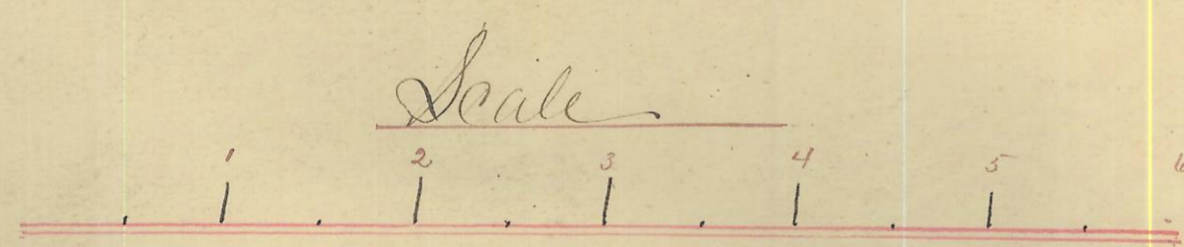 Scale
1 2 3 4 5 6